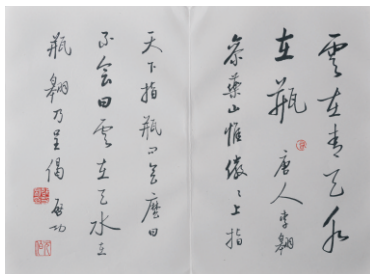 雲在青天水
在瓶 唐人李翱
叅藥山惟儼〻上指
天下指瓶曰會麼曰
不會曰雲在天水在
瓶翱乃呈偈 啟功